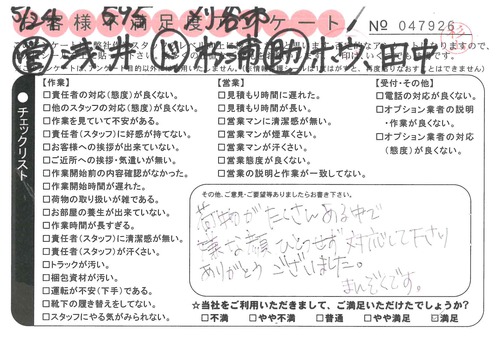 5/24 5年5 刈谷市
お客様満足度アンケート! No 047926
営 浅井 ド 加藤 助 木村 田中
チェックリスト
【作業】
□責任者の対応(態度)が良くない。
□他のスタッフの対応(態度)が良くない。
□作業を見ていて不安がある。
□責任者(スタッフ)に好感が持てない。
□お客様への挨拶が出来ていない。
□ご近所への挨拶・気遣いが無い。
□作業開始前の内容確認がなかった。
□作業開始時間が遅れた。
□荷物の取り扱いが雑である。
□お部屋の養生が出来ていない。
□作業時間が長すぎる。
□責任者(スタッフ)に清潔感が無い。
□責任者(スタッフ)が汗くさい。
□トラックが汚い。
□梱包資材が汚い。
□運転が不安(下手)である。
□靴下の履き替えをしてない。
□スタッフにやる気がみられない。
【営業】
□見積もり時間に遅れた。
□見積もり時間が長い。
□営業マンに清潔感が無い。
□営業マンが煙草くさい。
□営業マンが汗くさい。
□営業態度が良くない。
□営業の説明と作業が一致してない。
【受付・その他】
□電話の対応が良くない。
□オプション業者の説明
・作業が良くない。
□オプション業者の対応
(態度)が良くない。
その他、ご意見・ご要望等ありましたらお書き下さい。
荷物がたくさんある中で
嫌な顔ひとつせず対応して下さり
ありがとうございました。
まんぞくです。
☆当社をご利用いただきまして、ご満足いただけたでしょうか?
□不満 □やや不満 □普通 □やや満足 ☑満足